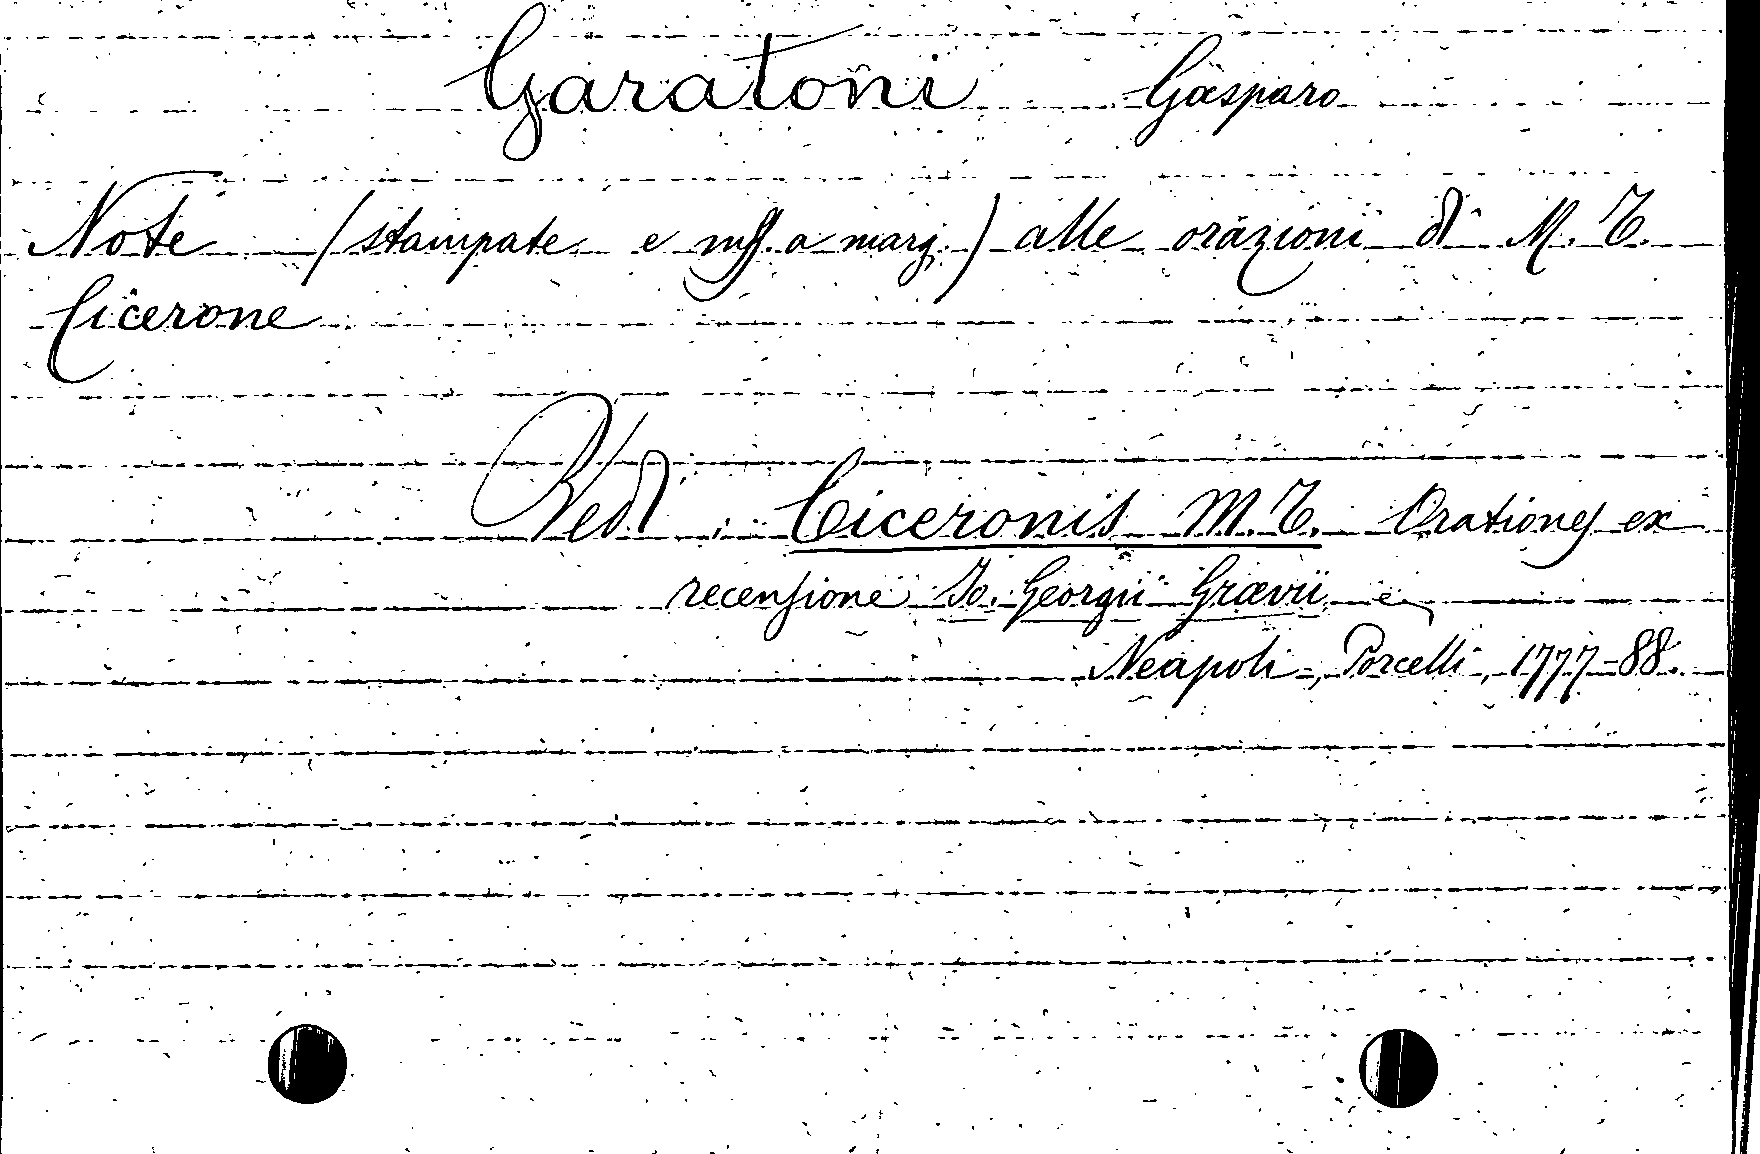 Garatoni Gasparo
Note (stampate e mss. a marg.) alle orazioni di M. T.
Cicerone
Vedi: Ciceronis M. T. Orationes ex
recensione Jo. Georgii Grævii
Neapoli, Porcelli, 1777-88.